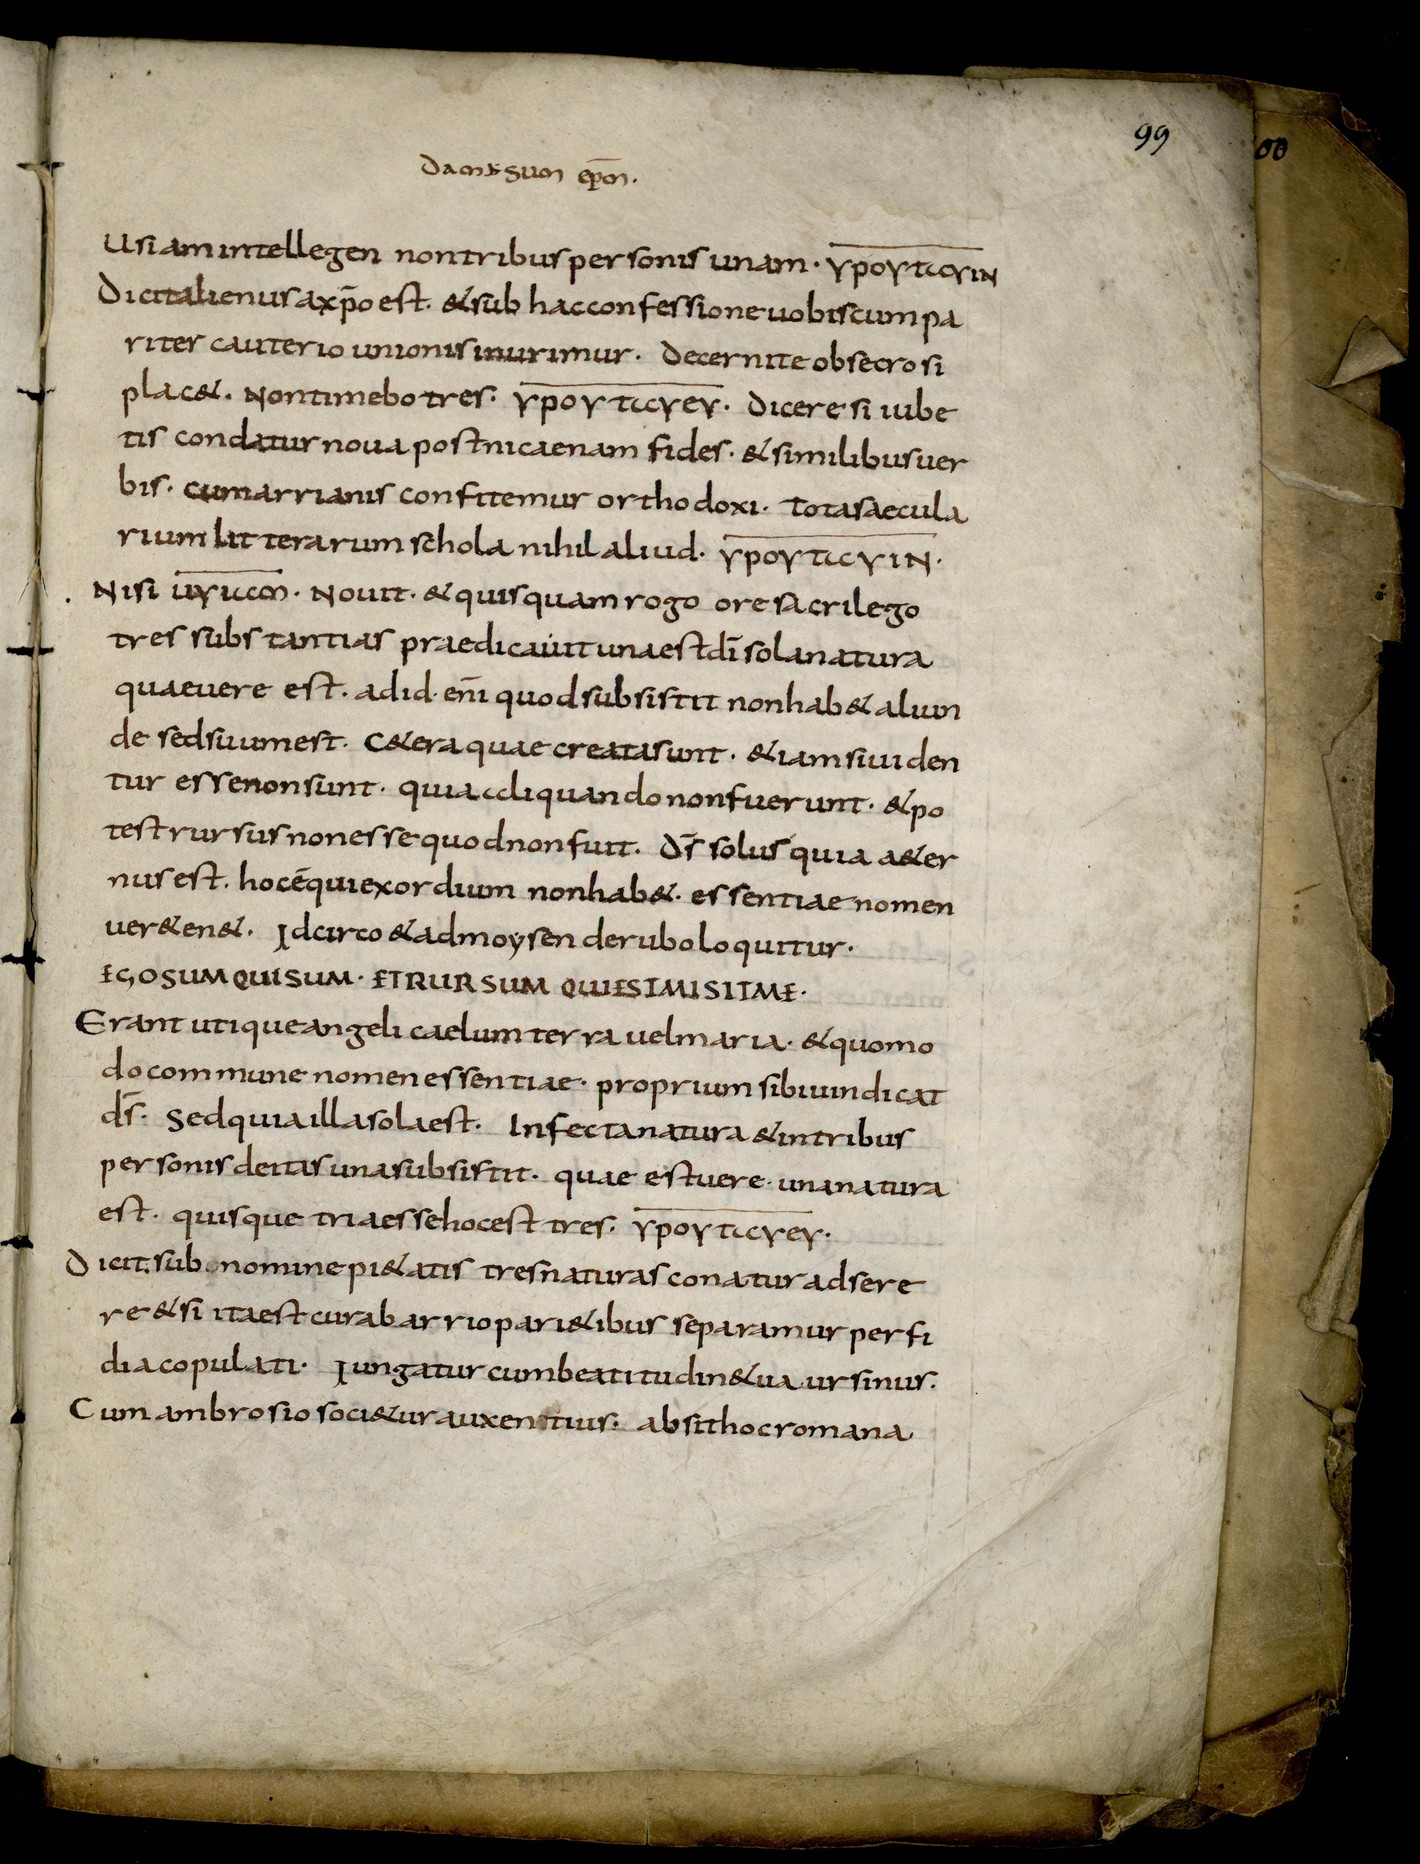 99
00
damasum epm̄.
Usiam intellegen non tribus personis unam · ypoyτιcyin
Dicit alienus a xp̄o est · & sub hac confessione uobiscum pa
riter cauterio unionis inurimur · Decernite obsecro si
plac& · Non timebo tres · ypoyτιcyey · Dicere si iube
tis condatur noua post nicaenam fides · & similibus uer
bis · cum arrianis confitemur orthodoxi · Tota saecula
rium litterarum schola nihil aliud · ypoyτιcyin ·
Nisi · Nouit · & quisquam rogo ore sacrilego
tres substantias praedicauit una est dī sola natura
quae uere est · ad id · enī quod subsistit non hab& aliun
de sed suum est · C&era quae creata sunt · &iam si uiden
tur esse non sunt · quia aliquando non fuerunt · & po
test rursus non esse quod non fuit · Ds̄ solus quia a&er
nus est · hoc ē qui exordium non hab& · essentiae nomen
uer& en& · Idcirco & ad moysen de rubo loquitur ·
EGO SUM QUI SUM · ET RURSUM QUI EST MISIT ME ·
Erant utique angeli caelum terra uel maria · & quomo
do commune nomen essentiae · proprium sibi uindicat
ds̄ · Sed quia illa sola est · Infecta natura & in tribus
personis deitas una subsistit · quae est uere una natura
est · quisque tria esse hoc est tres · ypoyτιcyey ·
Dicit sub nomine pi&atis tres naturas conatur adsere
re & si ita est cur ab arrio pari&ibus separamur perfi
dia copulati · Iungatur cum beatitudin& ua ursinus ·
Cum ambrosio soci&ur auxentius · absit hoc romana